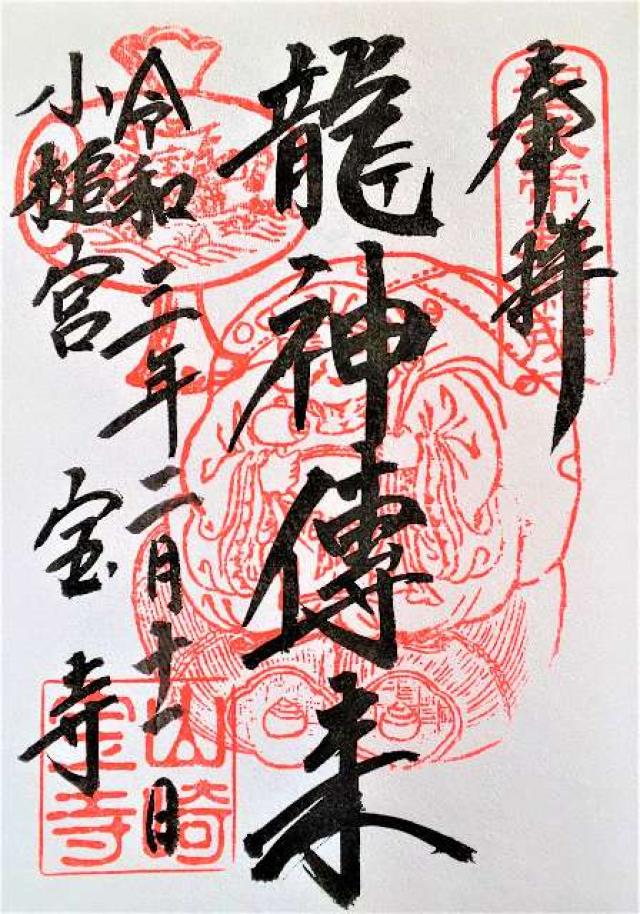 奉拝
龍神傳来
令和三年二月十一日
小槌宮 宝寺
山崎
宝寺